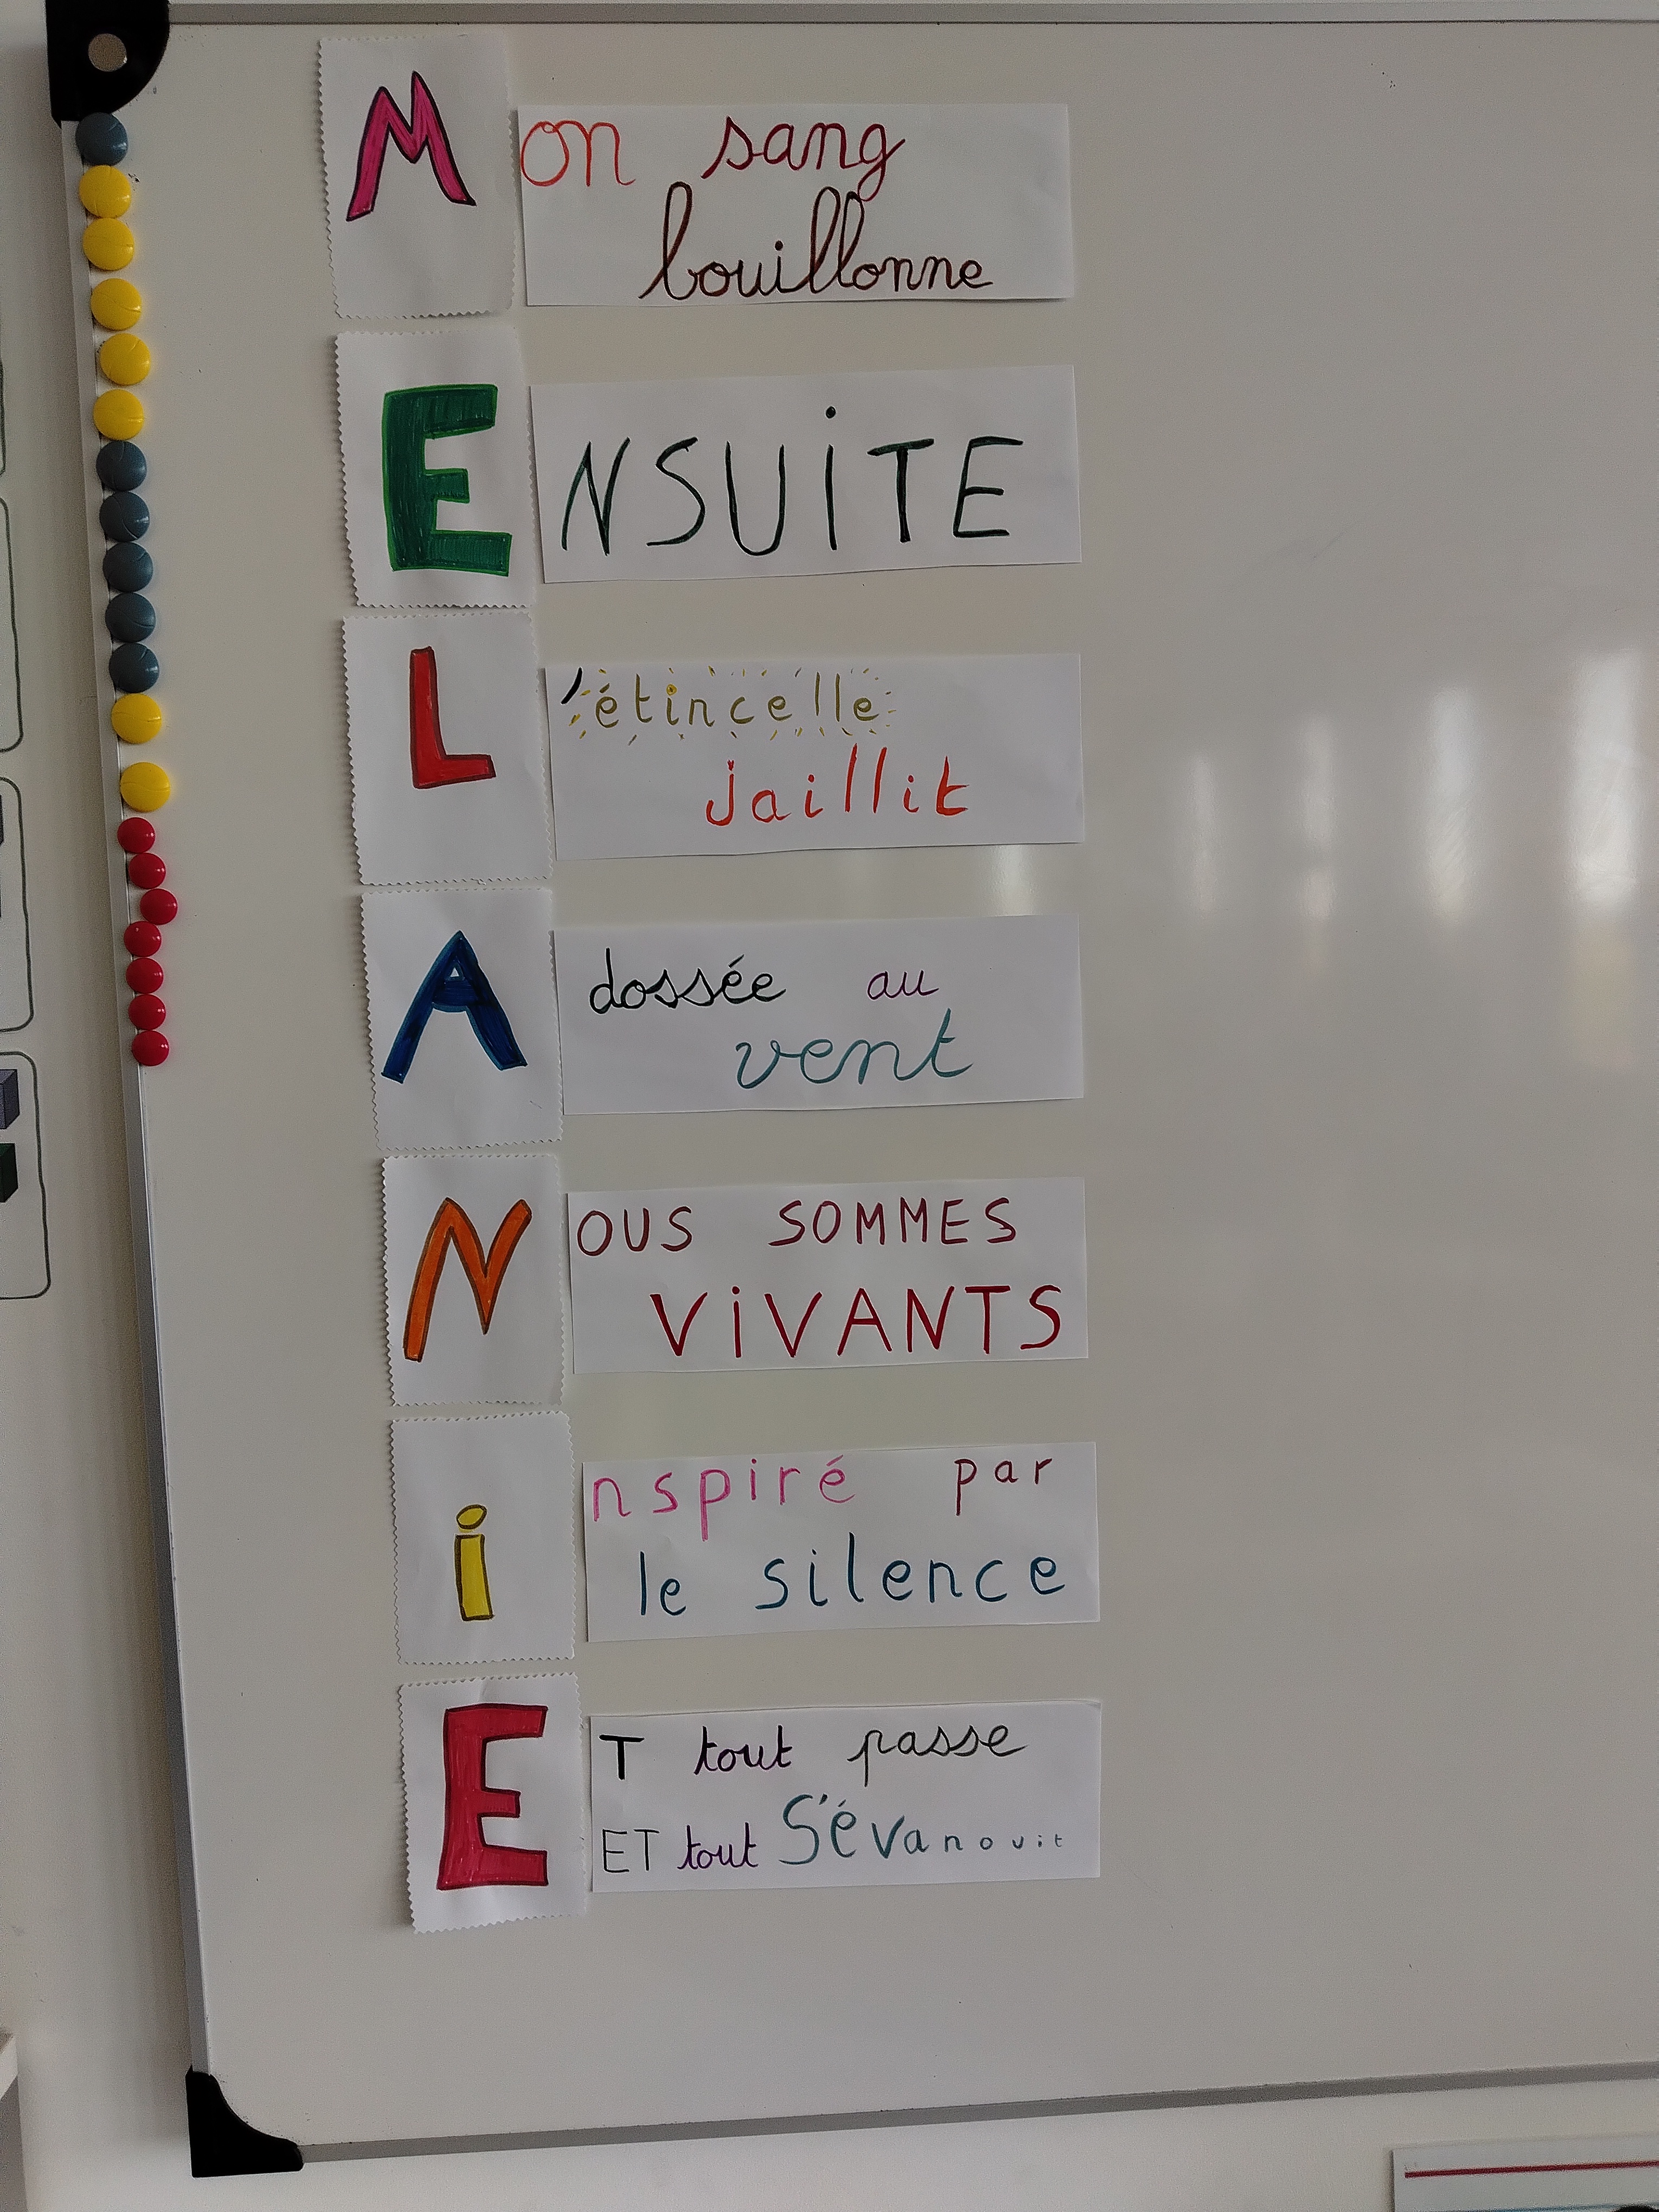 Mon sang
bouillonne
ENSUiTE
L'étincelle
jaillit
Adossée au
vent
NOUS SOMMES
ViVANTS
inspiré par
le silence
ET tout passe
ET tout S'évanouit